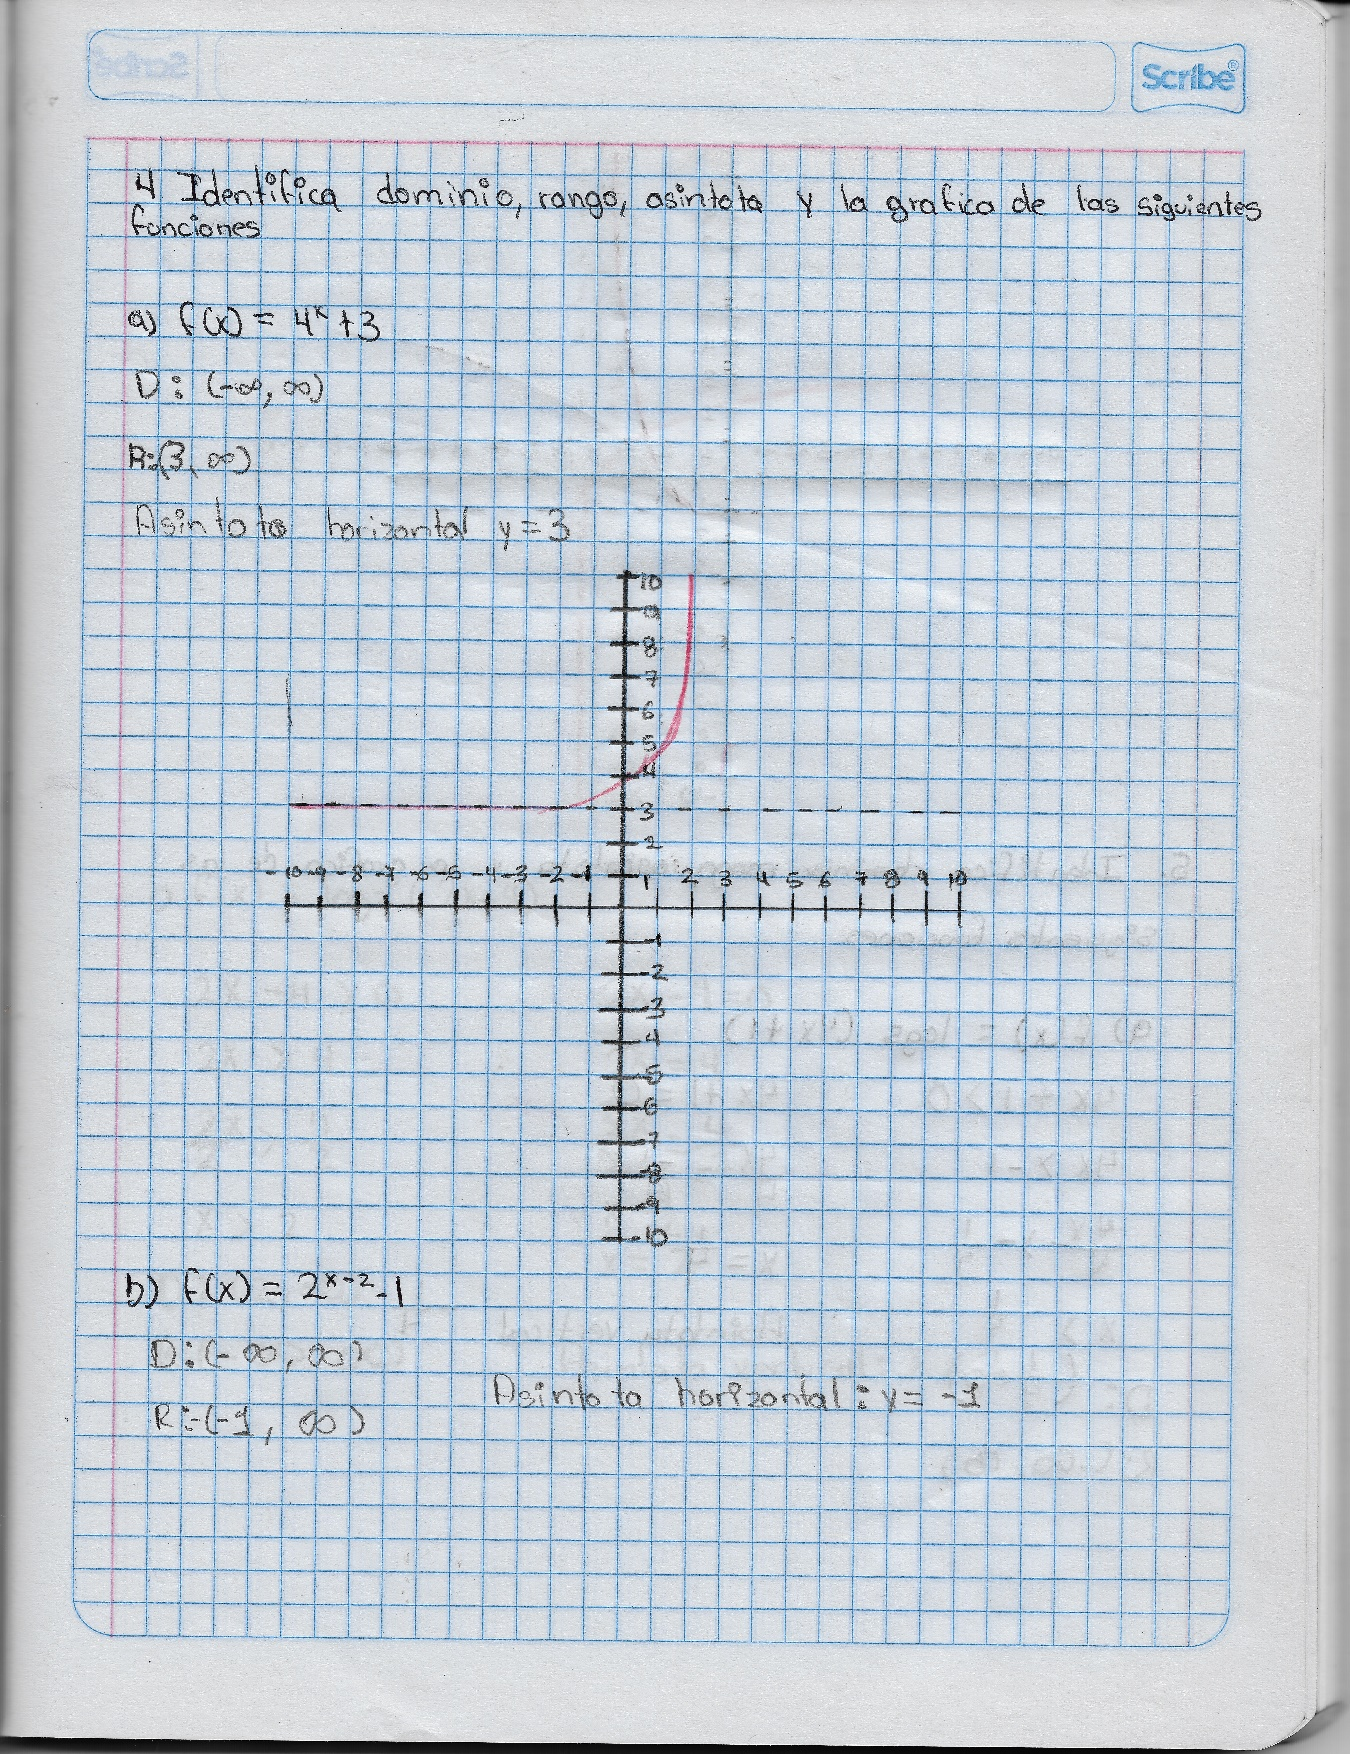 Scribe®
4 Identifica dominio, rango, asintota y la grafica de las siguientes
funciones
a) f(x) = 4ˣ+3
D: (-∞, ∞)
R:(3, ∞)
Asintota horizontal y=3
10
9
8
7
6
5
4
3
2
-10 -9 -8 -7 -6 -5 -4 -3 -2 -1 1 2 3 4 5 6 7 8 9 10
-1
-2
-3
-4
-5
-6
-7
-8
-9
-10
b) f(x) = 2ˣ⁻²-1
D:(-∞, ∞)
Asintota horizontal: y= -1
R:(-1, ∞)